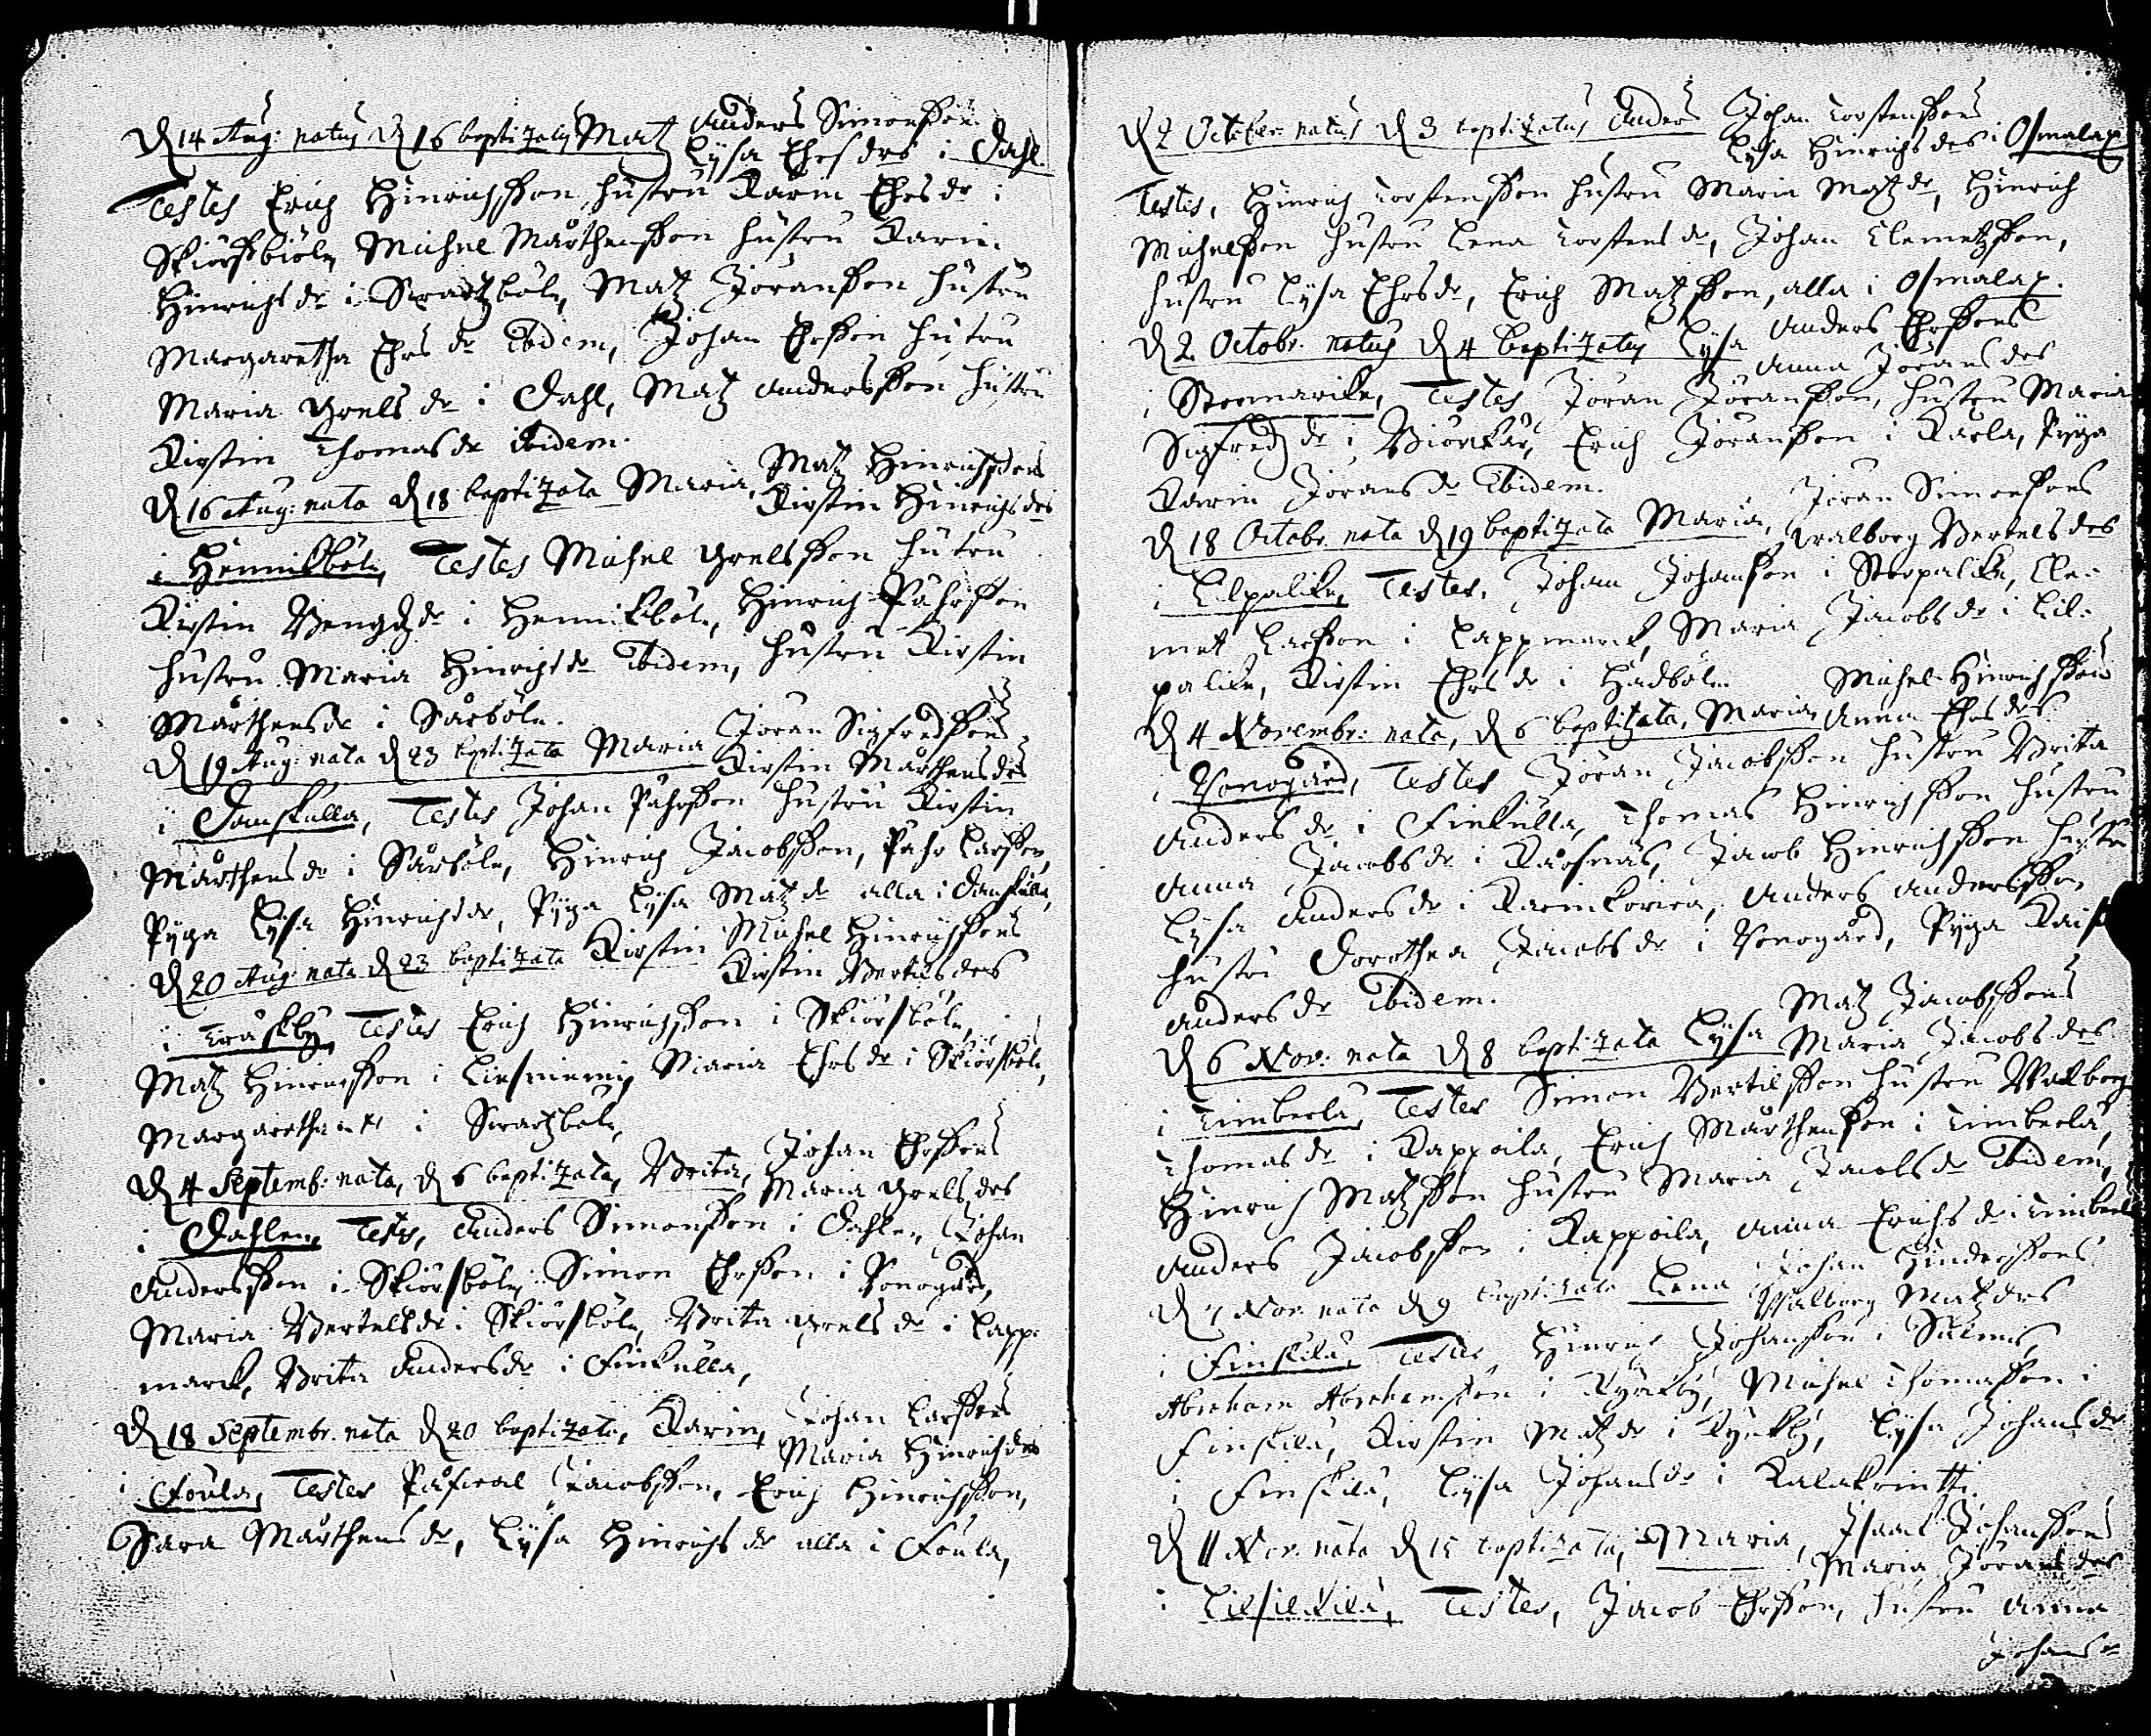 D 14 Aug: natus D 16 baptizatus Matz Anders Simonssons
Lysa Ehrsdrs i Dahl.
Testes Erich Hinrichsson hustru Karin Ehrsdr i
Skiörsböle, Michel Mårthensson hustru Karin
Hinrichsdr i Swartzböle, Matz Jöransson hustru
Margaretha Ehrsdr Ibidem, Johan Ehrsson hustru
Maria Grelsdr i Dahl, Matz Andersson hustru
Kirstin Thomasdr ibidem.
D 16 Aug: nata D 18 baptizata Maria, Matz Hinrichssons
Kirstin Hinrichsdrs
i Hennikböle, Testes Michel Grelsson hustru
Kirstin Bengdzdr i Hennikböle, Hinrich Påhrsson
hustru Maria Hinrichsdr Ibidem, hustru Kirstin
Mårthensdr i Sårböle.
D 19 Aug: nata D 23 baptizata Maria Jöran Sigfredssons
Kirstin Mårthensdrs
i Domskulla, Testes Johan Påhrsson hustru Kirstin
Mårthensdr i Sårböle, Hinrich Jacobsson, Påhr Larsson,
Pyga Lysa Hinrichsdr, Pyga Lysa Matzdr alla i Domskulla,
D 20 Aug: nata D 23 baptizata Kirstin Michel Hinrichssons
Kirstin Bertilsdrs
i Träskby, Testes Erich Hinrichsson i Skiörsböle,
Matz Hinrichsson i Liesniemi, Maria Ehrsdr i Skiörsböle,
Margaretha i Swartzböle,
D 4 Septemb: nata, D 6 baptizata, Brita, Johan Ehrssons
Maria Grelsdrs
i Dahlen, Testes, Anders Simonsson i Dahlen, Johan
Andersson i Skiörsböle, Simon Ehrsson i Bonogård,
Maria Bertelsdr i Skiörsböle, Brita Grelsdr i Lapp:
marck, Brita Andersdr i Finkulla,
D 18 Septembr. nata D 20 baptizata, Karin, Johan Larssons
Maria Hinrichsdrs
i Soula, Testes Påfwal Jacobsson, Erich Hinrichsson,
Sara Mårthensdr, Lysa Hinrichsdr alla i Soula,
D 2 October: natus D 3 baptizatus Anders Johan Torstenssons
Lysa Hinrichsdrs i Osmalax
Testes, Hinrich Torstensson hustru Maria Matzdr, Hinrich
Michelsson hustru Lena Torstensdr, Johan Clemetzson,
hustru Lysa Ehrsdr, Erich Matzsson, alla i Osmalax.
D 2. Octobr. natus D 4 baptizatus Lysa Anders Ehrssons
Anna Jöransdrs
i Stormarike, Testes Jöran Jöransson, hustru Maria
Sigfredzdr i Biörkär, Erich Jöransson i Karla, Pyga
Karin Jöransdr Ibidem.
D 18 Octobr. nata D 19 baptizata Maria, Jöran Simonssons
Walborg Bertelsdrs
i Lilpalike, Testes, Johan Johansson i Storpalike, Cle:
met Larsson i Lappmarck, Maria Jacobsdr i Lil:
palike, Kirstin Ehrsdr i Hadböle.
D 4 Novembr: nata, D 6 baptizata, Maria, Michel Hinrichssons
Anna Ehrsdrs
i Bonogård, Testes Jöran Jacobsson hustru Brita
Andersdr i Finkulla, Thomas Hinrichsson hustru
Anna Jacobsdr i Kårsnäs, Jacob Hinrichsson hustru
Lysa Andersdr i Karinkorva, Anders Andersson
hustru Dorothea Jacobsdr i Bonogård, Pyga
Andersdr Ibidem.
D 6 Nov: nata D 8 baptizata Lysa Matz Jacobssons
Maria Jacobsdrs
i Timberla, Testes Simon Bertilsson hustru Walborg
Thomasdr i Kappoila, Erich Mårthensson i Timberla,
Hinrich Matzsson hustru Maria Jacobsdr Ibidem,
Anders Jacobsson i Kappoila, Anna Erichsdr i Timberla
D 7 Nov. nata D 9 baptizata Lena Johan Hinderssons
Walborg Matzdrs
i Finskilä, Testes Hinric Johansson i Sälmis,
Abraham Abrahamsson i Kyrkby, Michel Thomasson i
Finskilä, Kirstin Matzdr i Kyrkby, Lysa Johansdr
i Finskilä, Lysa Johansdr i Kalakrintti.
D 11 Nov. nata D 15 baptizata, Maria, Isaac Johanssons
Maria Jöransdrs
i Lilsilkilä, Testes, Jacob Ehrsson, hustru Anna
Johansdr